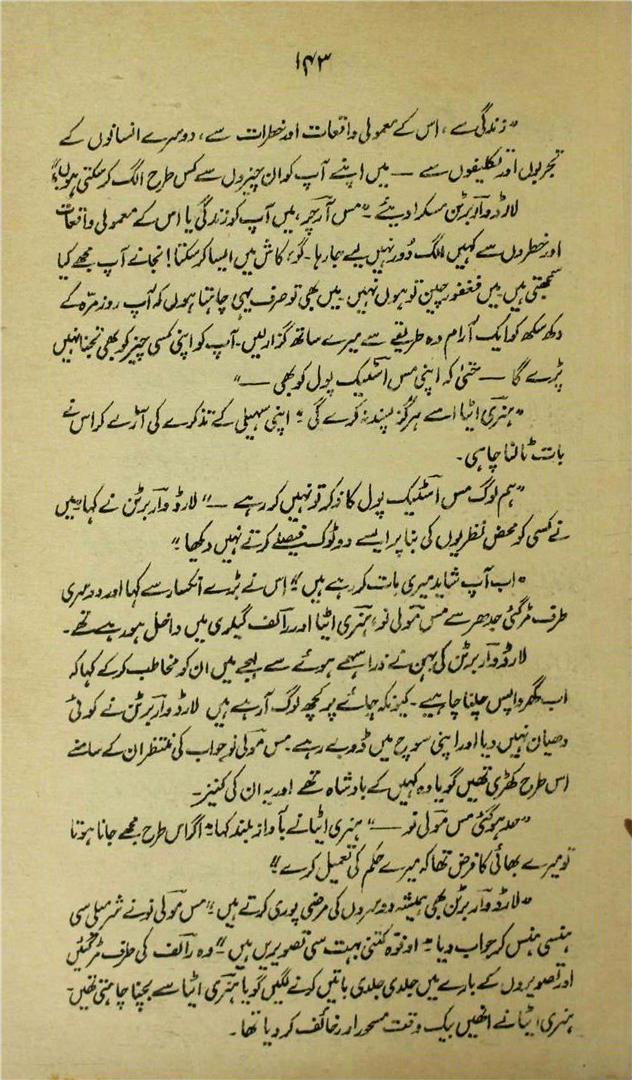 ۱۴۳
"زندگی سے، اس کے معمولی واقعات اور خطرات سے، دوسرے انسانوں کے
تجربوں اور تکلیفوں سے — میں اپنے آپ کو ان چیزوں سے کس طرح الگ کر سکتی ہوں؟"
لارڈ واربرٹن مسکرا دیئے "مس آرچر، میں آپ کو زندگی یا اس کے معمولی واقعات
اور خطروں سے کہیں الگ دُور نہیں لیے جا رہا۔ گو، کاش میں ایسا کر سکتا! نجانے آپ مجھے کیا
سمجھتی ہیں۔ میں فغفورِ چین تو ہوں نہیں۔ میں بھی تو صرف یہی چاہتا ہوں کہ آپ روزمرّہ کے
دکھ سکھ کو ایک آرام دہ طریقے سے میرے ساتھ گزار لیں۔ آپ کو اپنی کسی چیز کو بھی تجنا نہیں
پڑے گا — حتیٰ کہ اپنی مس اسٹیک پول کو بھی —"
"ہنری اٹیا اسے ہرگز پسند نہ کرے گی" اپنی سہیلی کے تذکرے کی آڑ لے کر اس نے
بات ٹالنا چاہی۔
"ہم لوگ مس اسٹیک پول کا ذکر تو نہیں کر رہے —" لارڈ واربرٹن نے کہا "میں
نے کسی کو محض نظریوں کی بنا پر ایسے دو ٹوک فیصلے کرتے نہیں دیکھا"
"اب آپ شاید میری بات کر رہے ہیں" اس نے بڑے انکسار سے کہا اور دوسری
طرف مڑ گئی جدھر سے مس مولی نو، ہنری اٹیا اور رالف گیلری میں داخل ہو رہے تھے۔
لارڈ واربرٹن کی بہن نے ذرا سہمے ہوئے سے لہجے میں ان کو مخاطب کر کے کہا کہ
اب گھر واپس چلنا چاہیے۔ کیونکہ چائے پر کچھ لوگ آ رہے ہیں لارڈ واربرٹن نے کوئی
دھیان نہیں دیا اور اپنی سوچ میں ڈوبے رہے۔ مس مولی نو جواب کی منتظر ان کے سامنے
اس طرح کھڑی تھیں گویا وہ کہیں کے بادشاہ تھے اور یہ ان کی کنیز۔
"حد ہو گئی مس مولی نو —" ہنری اٹیا نے بآوازِ بلند کہا "اگر اس طرح مجھے جانا ہوتا
تو میرے بھائی کا فرض تھا کہ میرے حکم کی تعمیل کرے"
"لارڈ واربرٹن بھی ہمیشہ دوسروں کی مرضی پوری کرتے ہیں" مس مولی نو نے شرمیلی سی
ہنسی ہنس کر جواب دیا "اوفوہ کتنی بہت سی تصویریں ہیں" وہ رالف کی طرف مڑ گئیں
اور تصویروں کے بارے میں جلدی جلدی باتیں کرنے لگیں گویا ہنری اٹیا سے بچنا چاہتی تھیں۔
ہنری اٹیا نے انھیں بیک وقت مسحور اور خائف کر دیا تھا۔